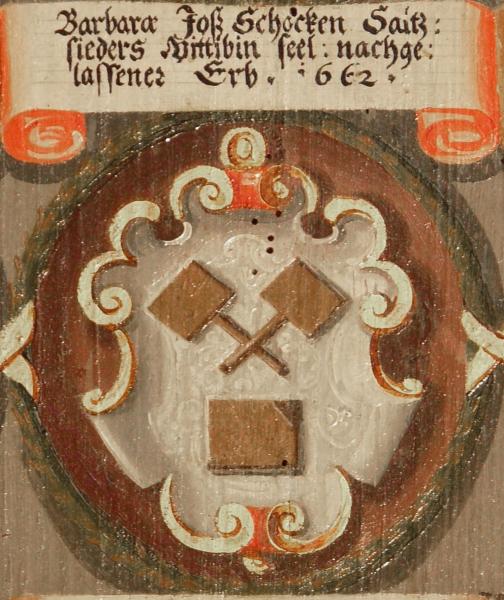 Barbaræ Joß Schocken Saltz:
sieders Wittibin seel: nachge:
lassener Erb. 1662.